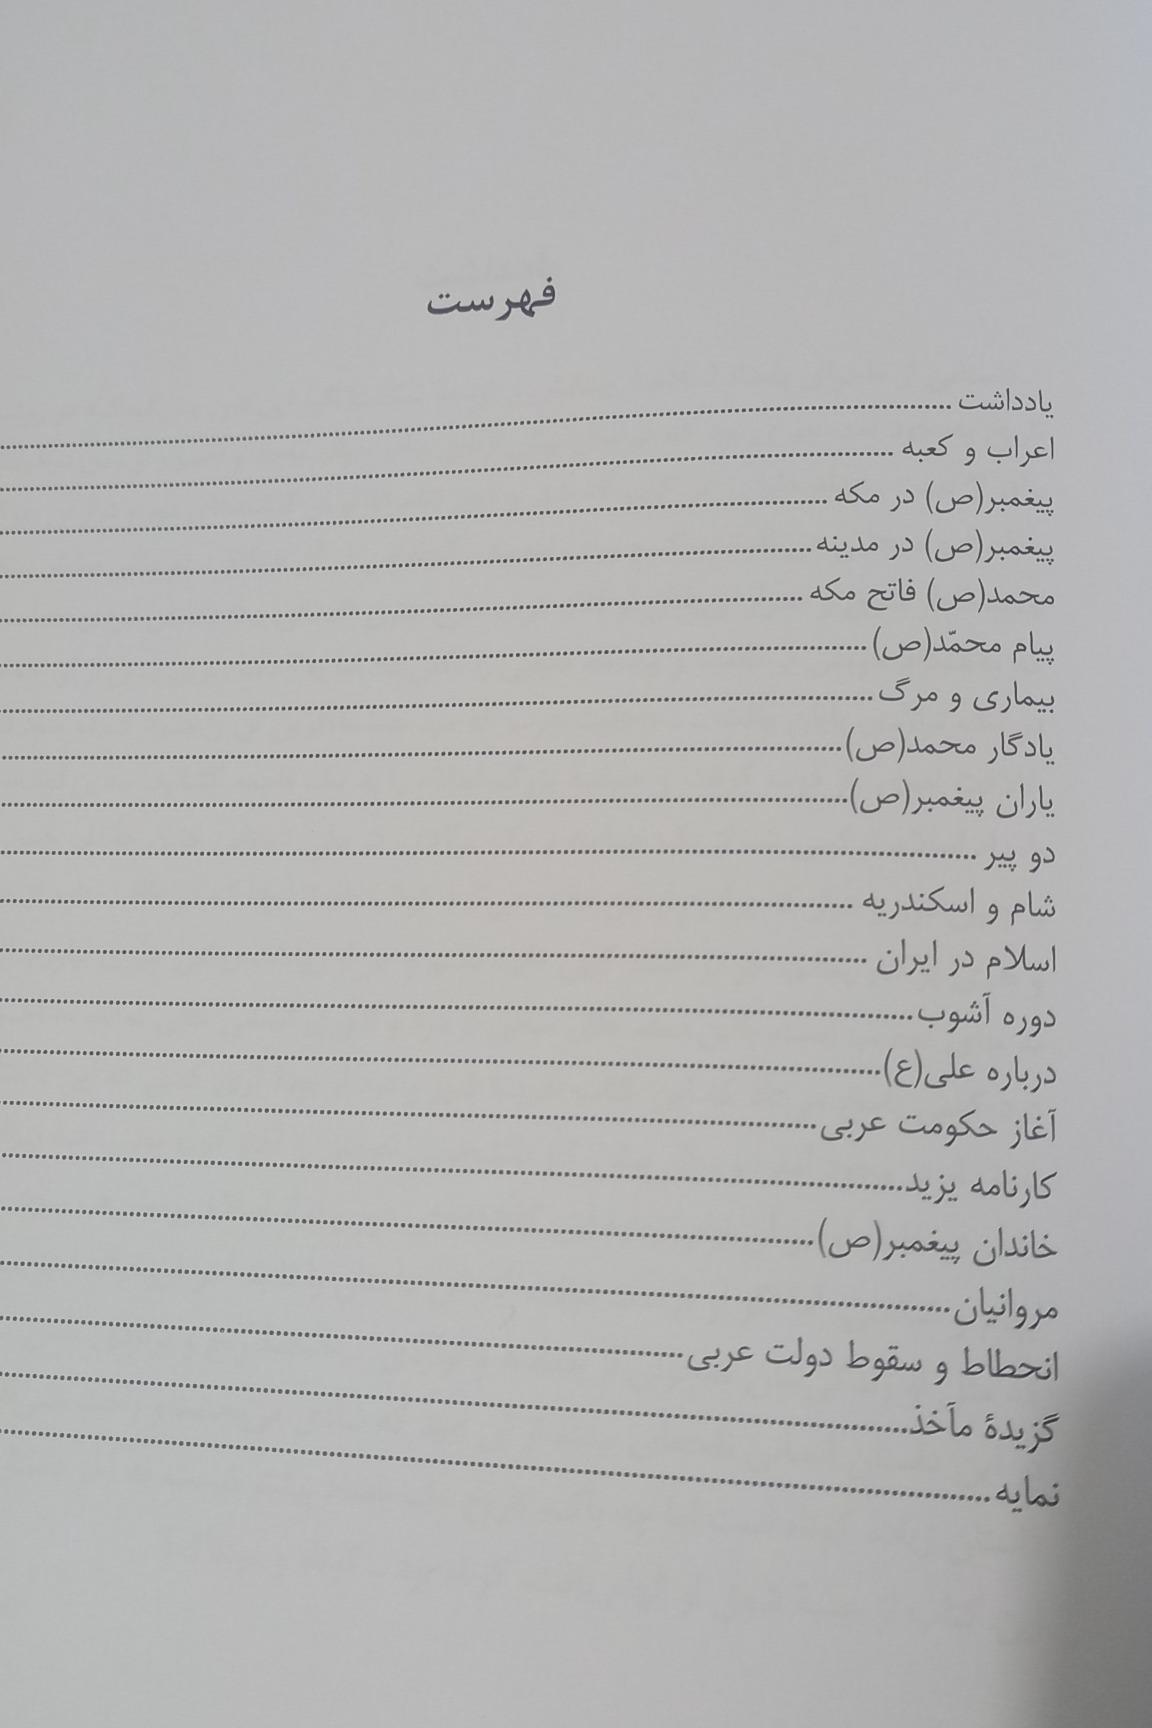 فهرست
یادداشت
اعراب و کعبه
پیغمبر(ص) در مکه
پیغمبر(ص) در مدینه
محمد(ص) فاتح مکه
پیام محمّد(ص)
بیماری و مرگ
یادگار محمد(ص)
یاران پیغمبر(ص)
دو پیر
شام و اسکندریه
اسلام در ایران
دوره آشوب
درباره علی(ع)
آغاز حکومت عربی
کارنامه یزید
خاندان پیغمبر(ص)
مروانیان
انحطاط و سقوط دولت عربی
گزیدهٔ مآخذ
نمایه